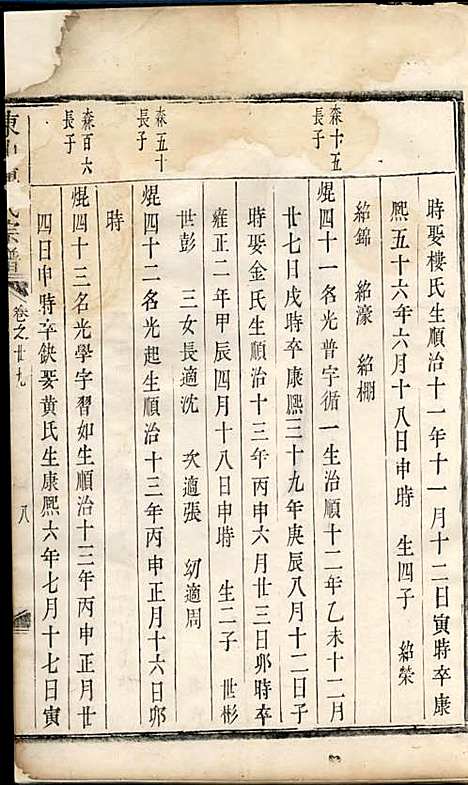 時娶樓氏生順治十一年十一月十二日寅時卒康
熙五十六年六月十八日申時　生四子　紹榮
紹錦　紹濠　紹棚
森十五
長子
焜四十一名光普字循一生治順十二年乙未十二月
廿七日戌時卒康熙三十九年庚辰八月十二日子
時娶金氏生順治十三年丙申六月廿三日卯時卒
雍正二年甲辰四月十八日申時　生二子　世彬
世彭　三女長適沈　次適張　幼適周
森五十
長子
焜四十二名光起生順治十三年丙申正月十六日卯
時
森百六
長子
焜四十三名光學字習如生順治十三年丙申正月廿
四日申時卒缺娶黃氏生康熙六年七月十七日寅
東
氏宗譜
卷之廿九
八